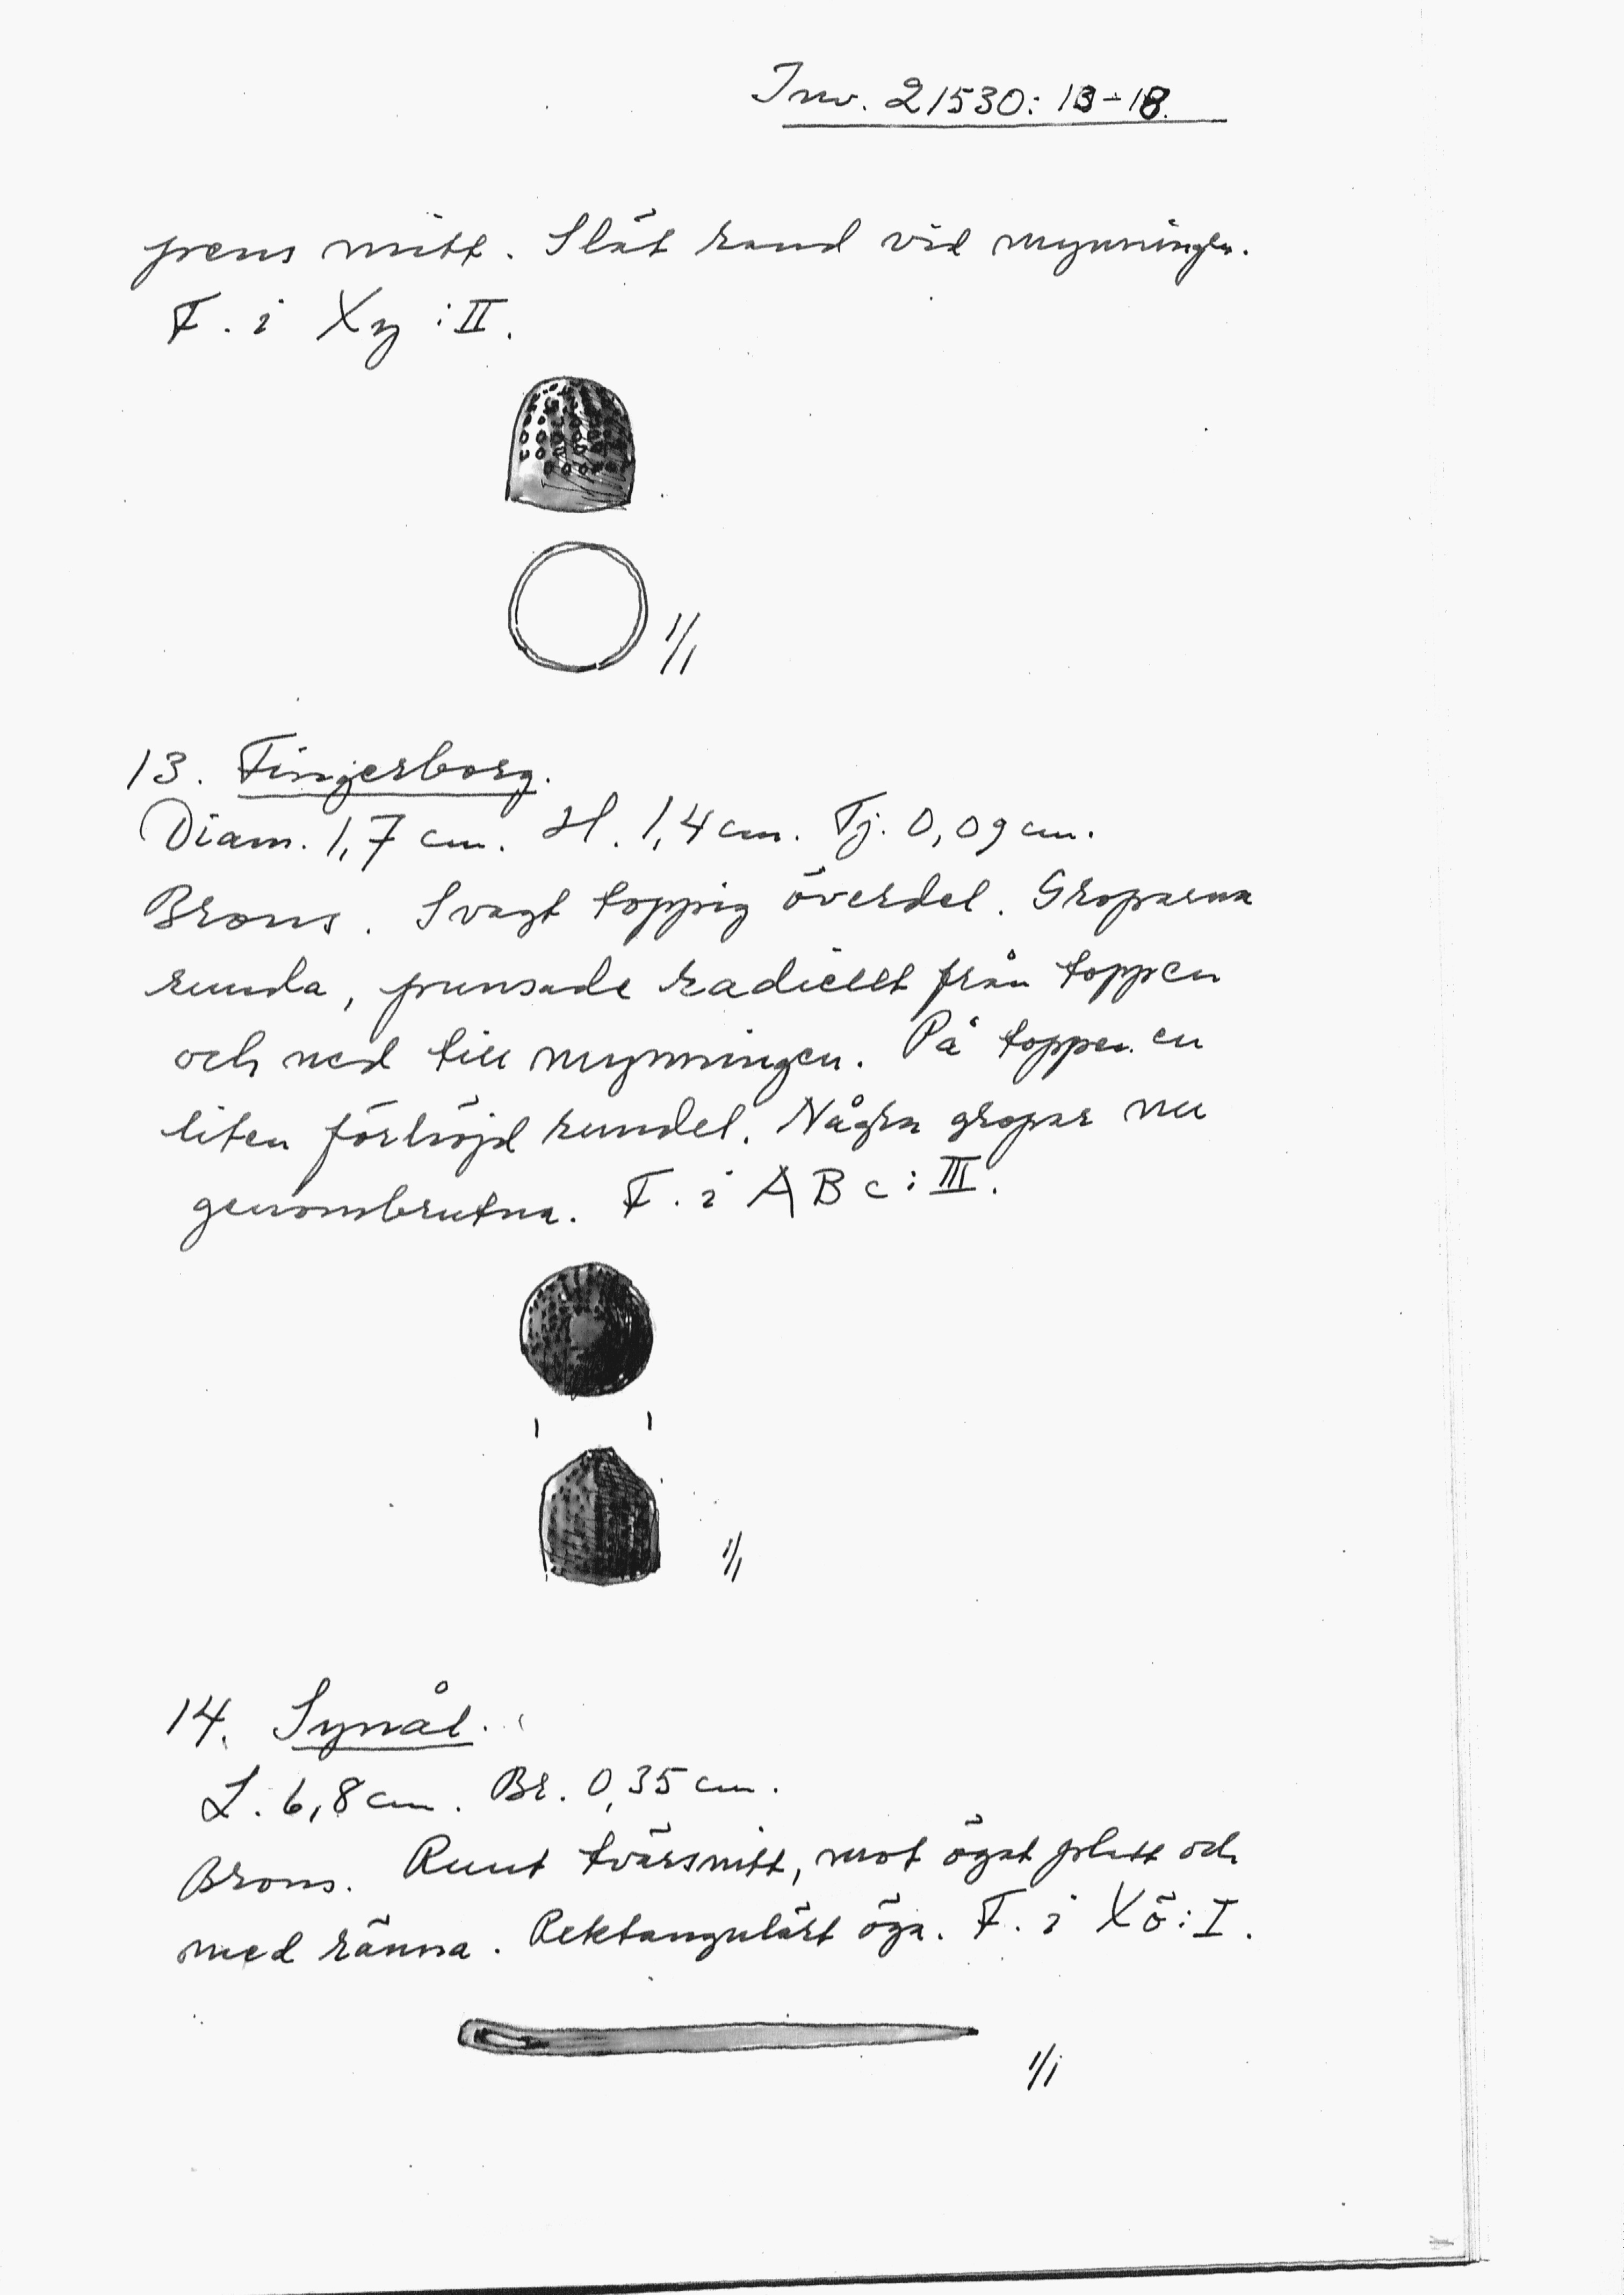 Inv. 21530: 13-18.
pens mitt. Slät rand vid mynningen.
F. i Xz : II.
1/1
13. Fingerborg.
Diam. 1,7 cm. H. 1,4 cm. Tj. 0,09 cm.
Brons. Svagt toppig överdel. Groparna
runda, punsade radiellt från toppen
och ned till mynningen. På toppen en
liten förhöjd rundel. Några gropar nu
genombrutna. F. i ABc: III.
1/1
14. Synål.
L. 6,8 cm. Br. 0,35 cm.
Brons. Runt tvärsnitt, mot ögat platt och
med ränna. Rektangulärt öga. F. i Xö: I.
1/1